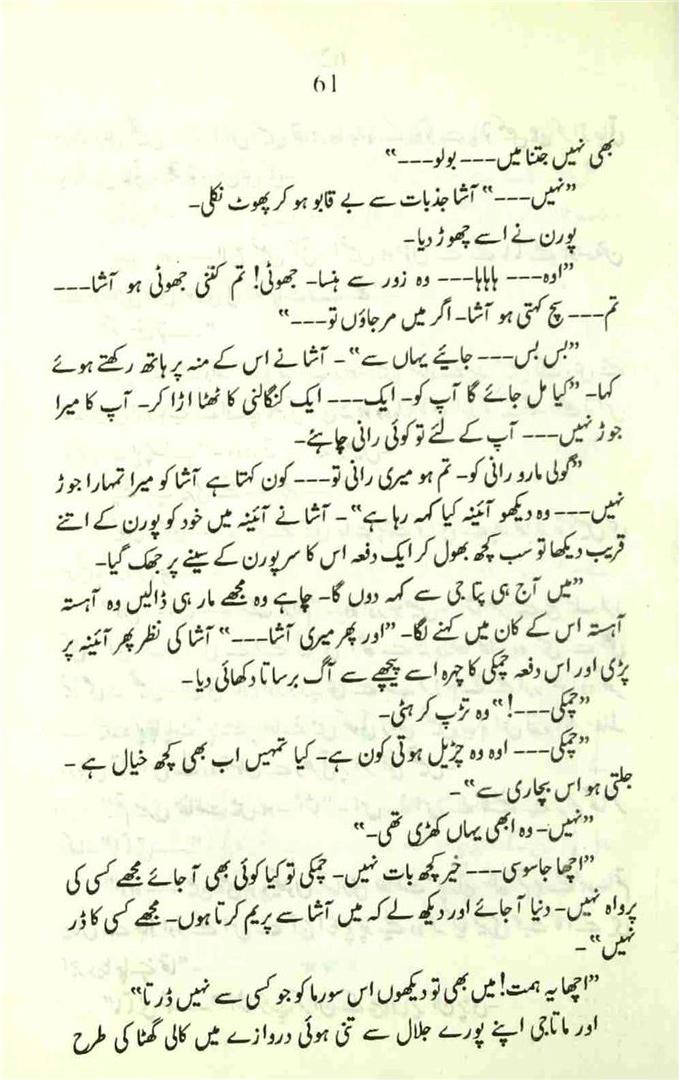 61
بھی نہیں جتنا میں--- بولو---"
"نہیں---" آشا جذبات سے بے قابو ہو کر پھوٹ نکلی-
پورن نے اسے چھوڑ دیا-
"اوہ--- ہاہاہا--- وہ زور سے ہنسا- جھوٹی! تم کتنی جھوٹی ہو آشا---
تم--- سچ کہتی ہو آشا- اگر میں مرجاؤں تو---"
"بس بس--- جایئے یہاں سے"- آشا نے اس کے منہ پر ہاتھ رکھتے ہوئے
کہا- "کیا مل جائے گا آپ کو- ایک--- ایک کنگالنی کا ٹھٹا اڑا کر- آپ کا میرا
جوڑ نہیں--- آپ کے لئے تو کوئی رانی چاہئے-
"گولی مارو رانی کو- تم ہو میری رانی تو--- کون کہتا ہے آشا کو میرا تمہارا جوڑ
نہیں--- وہ دیکھو آئینہ کیا کہہ رہا ہے"- آشا نے آئینہ میں خود کو پورن کے اتنے
قریب دیکھا تو سب کچھ بھول کر ایک دفعہ اس کا سر پورن کے سینے پر جھک گیا-
"میں آج ہی پتا جی سے کہہ دوں گا- چاہے وہ مجھے مار ہی ڈالیں وہ آہستہ
آہستہ اس کے کان میں کہنے لگا- "اور پھر میری آشا---" آشا کی نظر پھر آئینہ پر
پڑی اور اس دفعہ چمکی کا چہرہ اسے پیچھے سے آگ برساتا دکھائی دیا-
"چمکی---!" وہ تڑپ کر ہٹی-
"چمکی--- اوہ وہ چڑیل ہوتی کون ہے- کیا تمہیں اب بھی کچھ خیال ہے-
جلتی ہو اس بچاری سے"-
"نہیں- وہ ابھی یہاں کھڑی تھی-"
"اچھا جاسوسی--- خیر کچھ بات نہیں- چمکی تو کیا کوئی بھی آ جائے مجھے کسی کی
پرواہ نہیں- دنیا آ جائے اور دیکھ لے کہ میں آشا سے پریم کرتا ہوں- مجھے کسی کا ڈر
نہیں"-
"اچھا یہ ہمت! میں بھی تو دیکھوں اس سورما کو جو کسی سے نہیں ڈرتا"
اور ماتا جی اپنے پورے جلال سے تنی ہوئی دروازے میں کالی گھٹا کی طرح